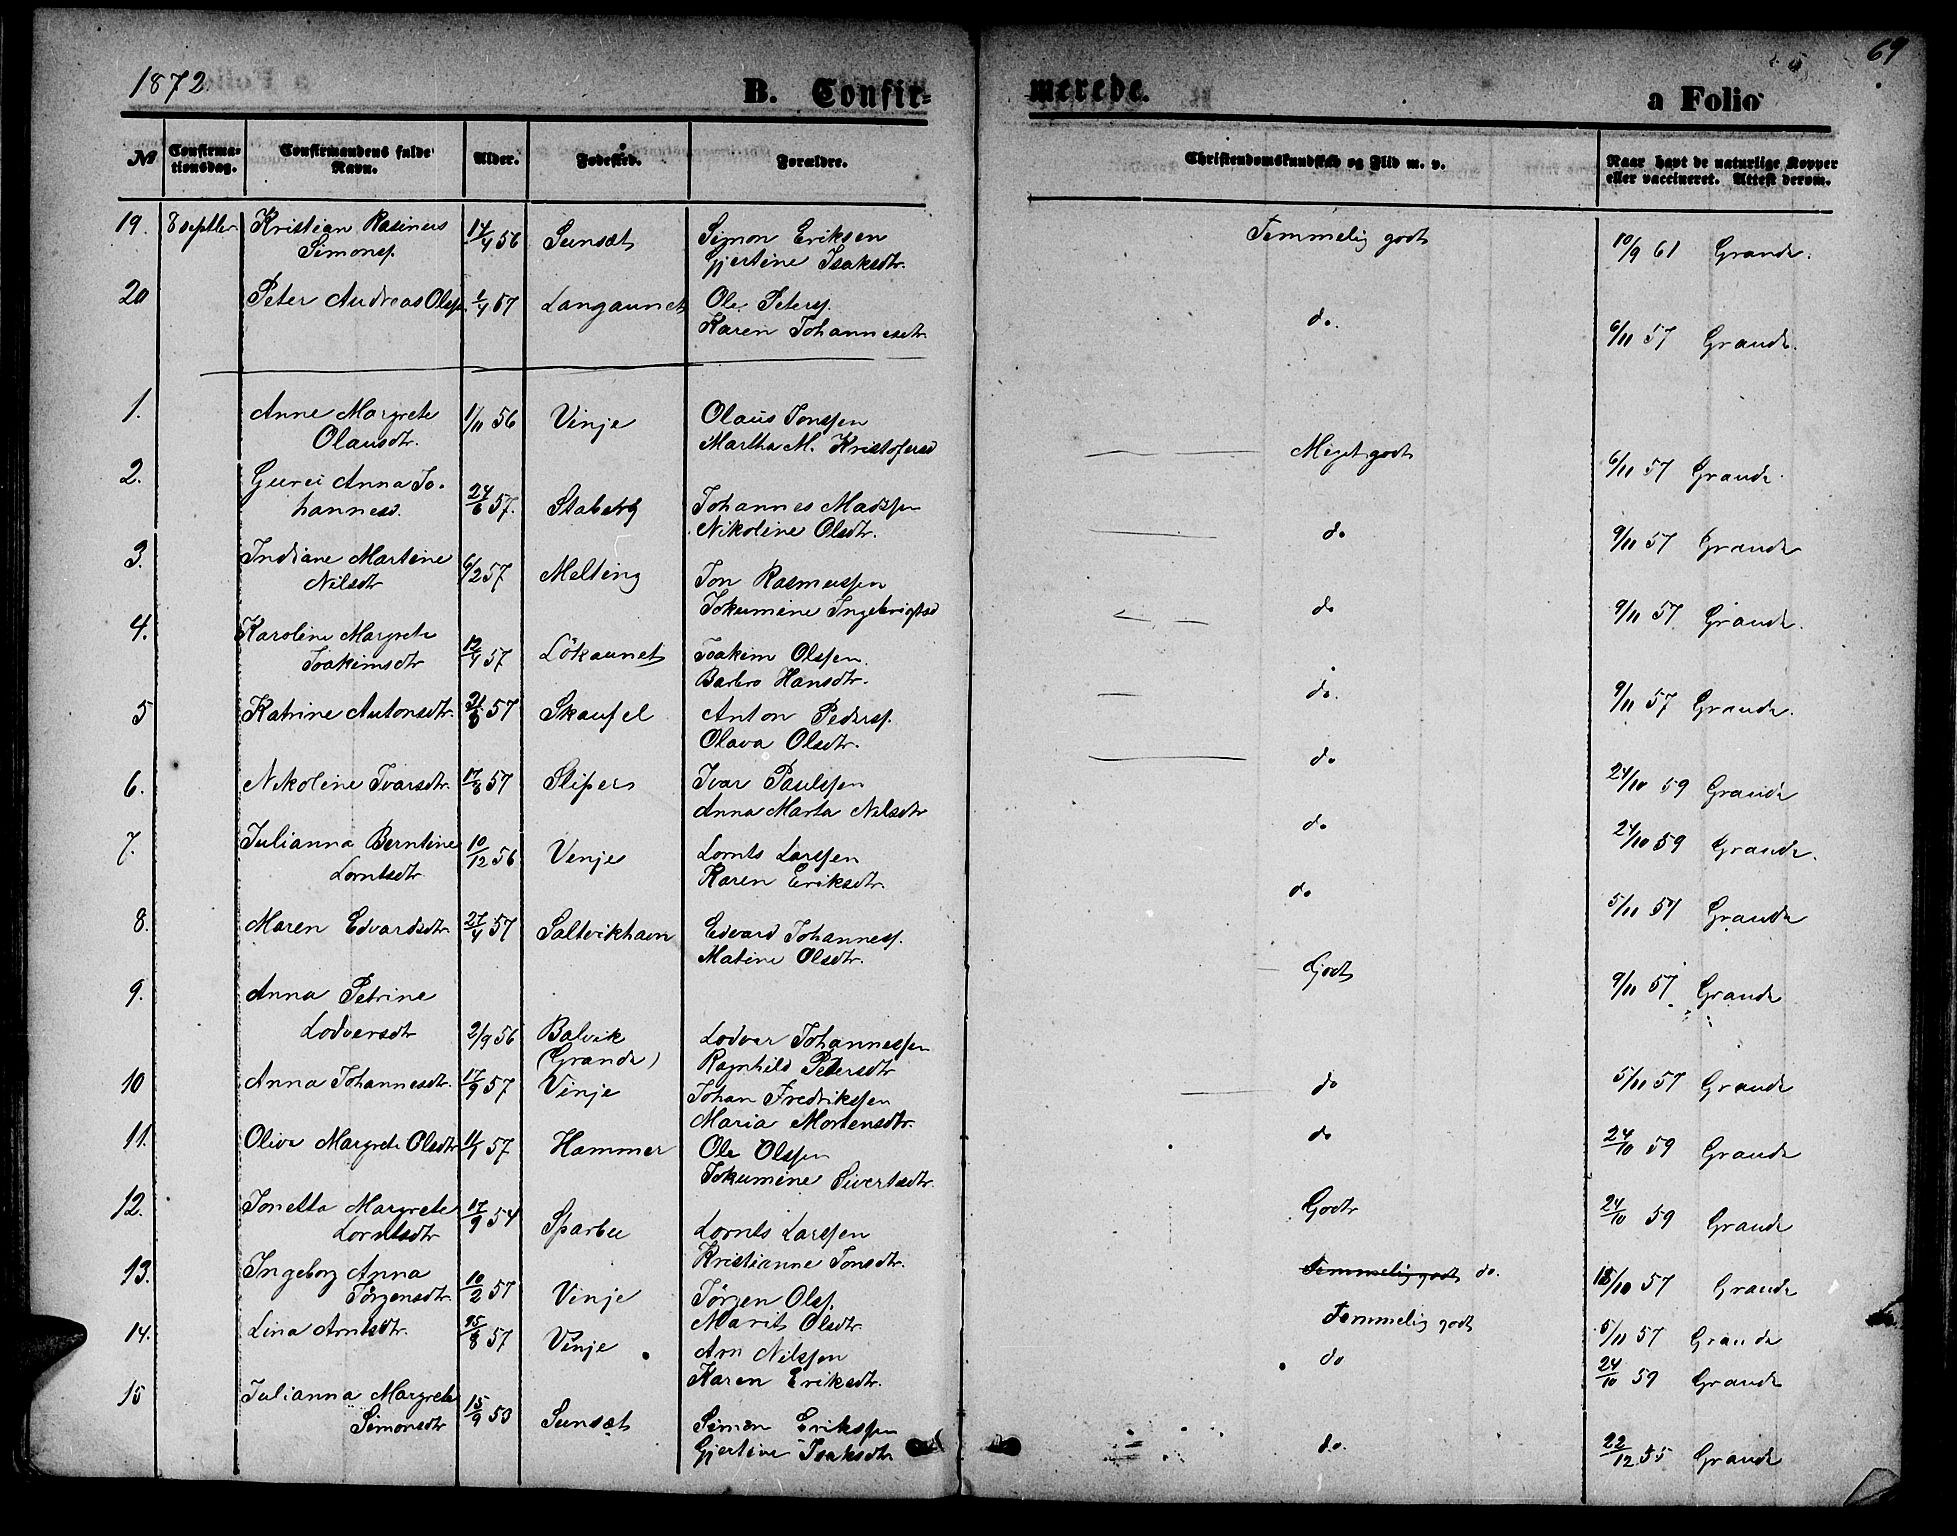 1872
69
B. Confir-
merede.
a Folio
№
Confirma-
tionsdag.
Confirmandens fulde
Navn.
Alder.
Fødested.
Forældre.
Christendomskundskab og Flid m. v.
Naar havt de naturlige Kopper
eller vaccineret. Attest derom.
19. 8 septbr Kristian Rasinus 14/4 56 Sunsæt Simon Eriksen Temmelig godt 10/9 61 Grande.
Simonsp. Gjertine Isaksdtr.
20 Peter Andreas Olsp. 1/4 57 Langaunet Ole Petersp. do. 6/11 57 Grande.
Karen Johannesdtr.
1. Anne Margrete 1/11 56 Vinje Olaus Jonssen Meget godt 6/11 57 Grande.
Olausdtr. Martha M. Kristofersd
2. Guru Anna Jo- 24/6 57. Staberg Johannes Madssen do 9/11 57 Grande
hannesd. Nikoline Olsdtr.
3. Indiane Martine 6/2 57 Melting Jon Rasmussen do 9/11 57 Grande.
Nilsdtr Jokumine Ingebrigtsd
4. Karoline Margrete 12/4 57 Lökaunet Joakim Olssen do. 9/11 57 Grande.
Joakimsdtr Barbro Hansdtr.
5 Katrine Antonsdtr. 57 Skaufel Anton Pedersp. do 24/10 59 Grande
Olava Olsdtr.
6. Nikoline Ivarsdtr. 17/8 57 Slipers Ivar Paulssen do 24/10 59 Grande.
Anna Marta Nilsdtr
7. Julianna Berntine 10/12 56 Venje Lornts Larssen do 5/11 57 Grande
Lorntsdtr. Karen Eriksdtr.
8. Maren Edvardsdtr. 27/4 57 Saltvikhavn Edvard Johannesp. Godt 9/11 57 Grande
Matine Olsdtr.
9. Anna Petrine
Lodversdtr 2/9 56 Balvik Lodver Johannessen do 5/11 57 Grande
(Grande) Ragnhild Petersdtr
10 Anna Johannesdtr. 17/9 57 Vinje Johan Fredrikssen do 24/10 59 Grande
Maria Mortensdtr.
11. Oliva Margrete Olsdtr 57 Hammer Ole Olssen
Jokumine Sivertsdtr.
12. Jonetta Margrete 17/9 54 Sparbu Lornts Larssen Godt 24/10 59 Grande
Lorntsdtr Kristianne Jonsdtr.
13. Ingeborg Anna 10/2 57 Vinje Jörgen Olsp. Temmelig godt do. 18/10 57 Grande
Jörgensdtr. Marit Olsdtr.
14. Lina Arntsdtr. 25/8 57 Vinje Arn Nilssen Temmelig godt 5/11 57 Grande
Karen Eriksdtr. do 24/10 59 Grande
15 Julianna Margrete 15/9 53 Sunsæt Simon Erikssen do. 22/12 55 Grande
Simonsdtr Gjertine Isaksdtr